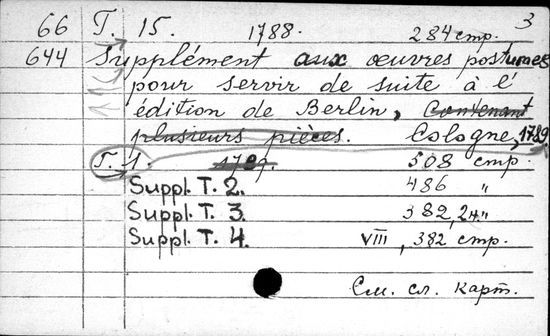 3
66 Т. 15. 1788. 284 стр.
644 Supplément aux œuvres postumes
pour servir de suite à l'
édition de Berlin, contenant
plusieurs pièces. Cologne, 1789.
T. 1. 1789. 508 стр.
Suppl. T. 2. 486 "
Suppl. T. 3. 382, 2н. "
Suppl. T. 4. VIII, 382 стр.
См. сл. карт.